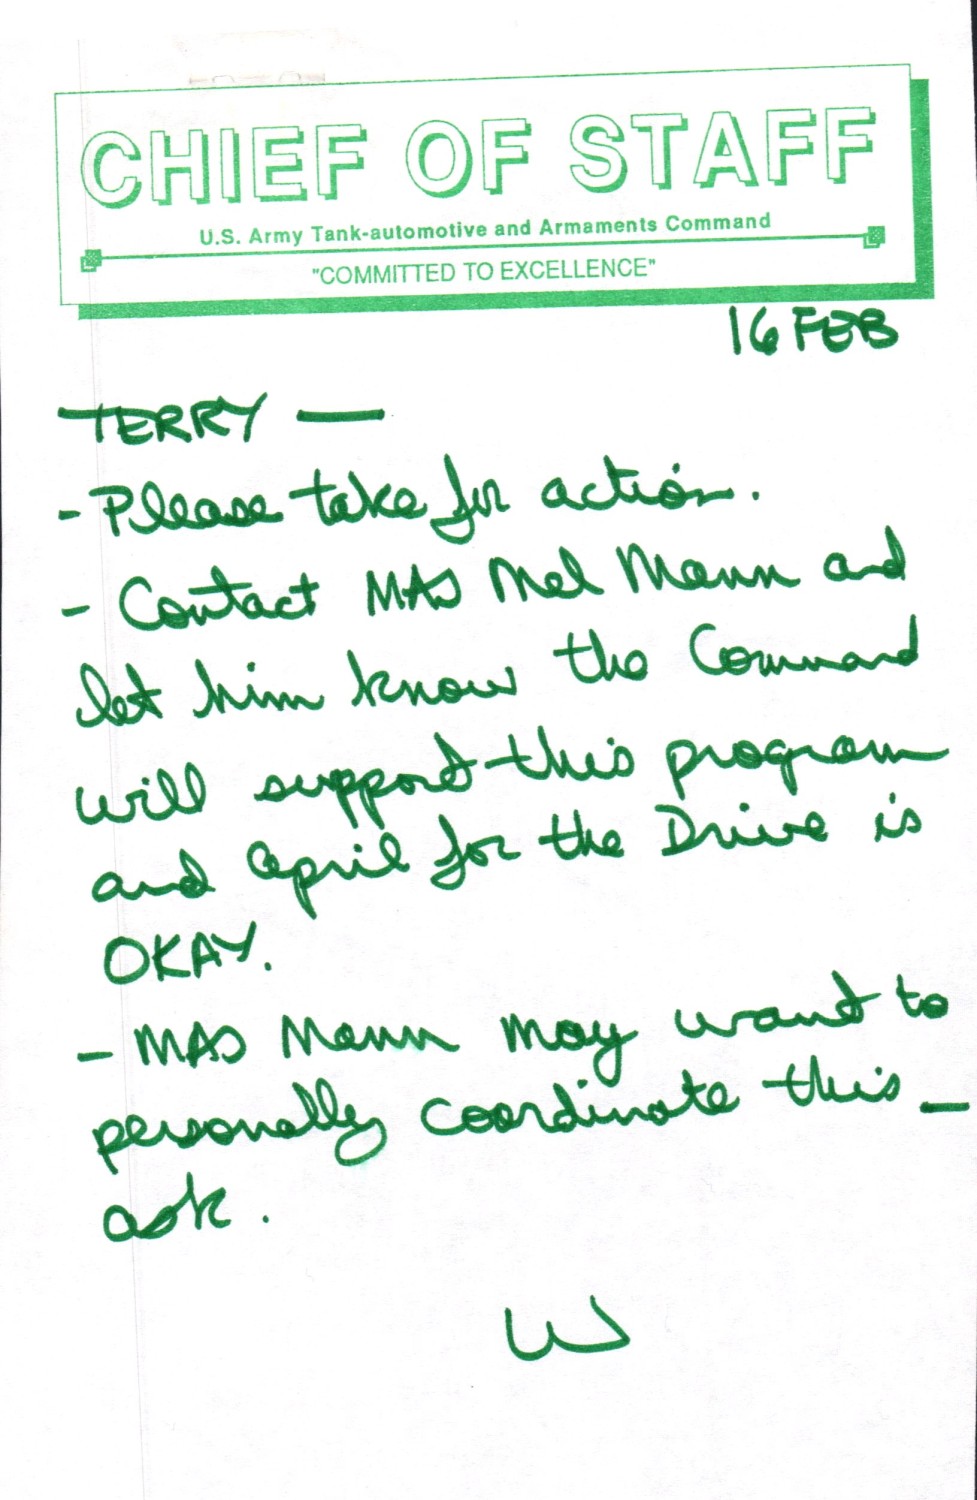 CHIEF OF STAFF
U.S. Army Tank-automotive and Armaments Command
"COMMITTED TO EXCELLENCE"
16 FEB
TERRY —
- Please take for action.
- Contact MAJ Mel Mann and
let him know the Command
will support this program
and April for the Drive is
OKAY.
- MAJ Mann may want to
personally coordinate this —
ask.
W